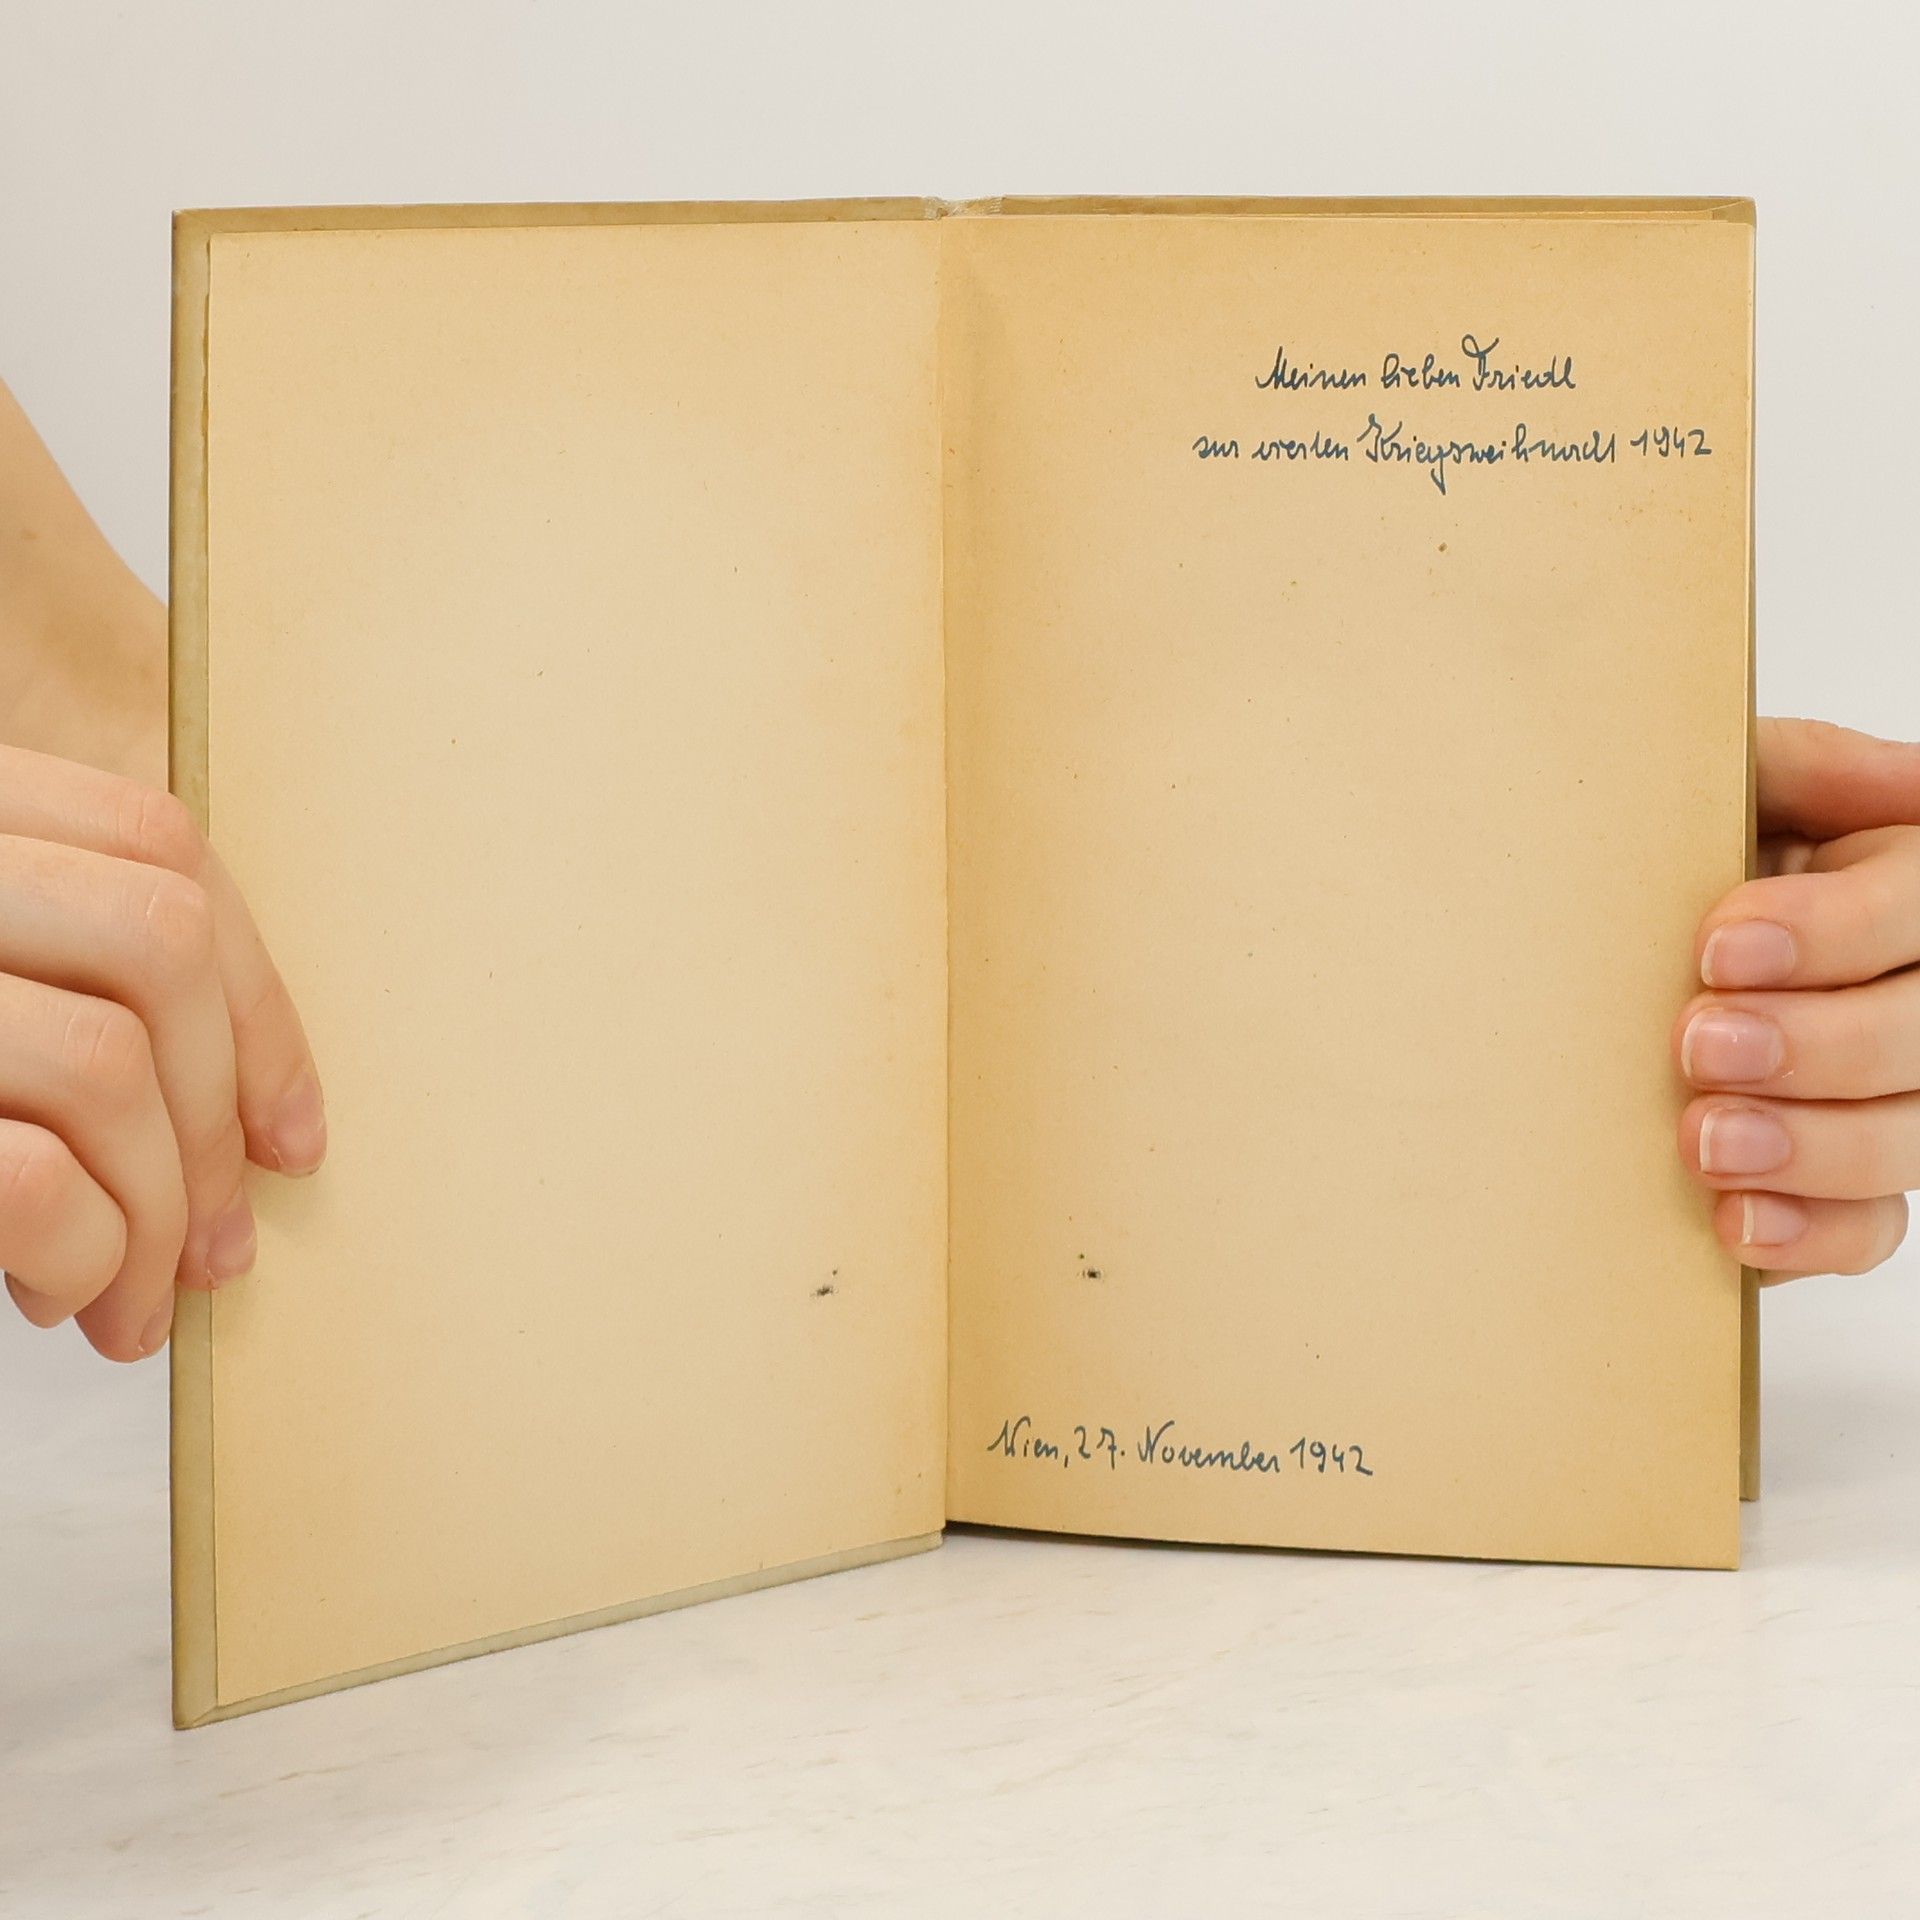 Meinen lieben Friedl
zur vierten Kriegsweihnacht 1942
Wien, 27. November 1942